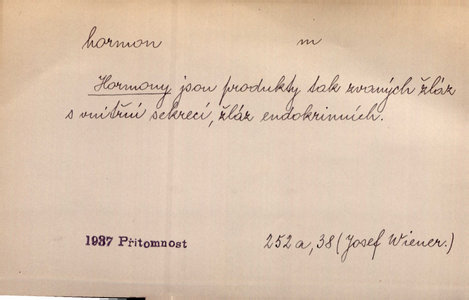 hormon m
Hormony jsou produkty tak zvaných žláz
s vnitřní sekrecí, žláz endokrinních.
1937 Přítomnost 252a, 38 (Josef Wiener.)